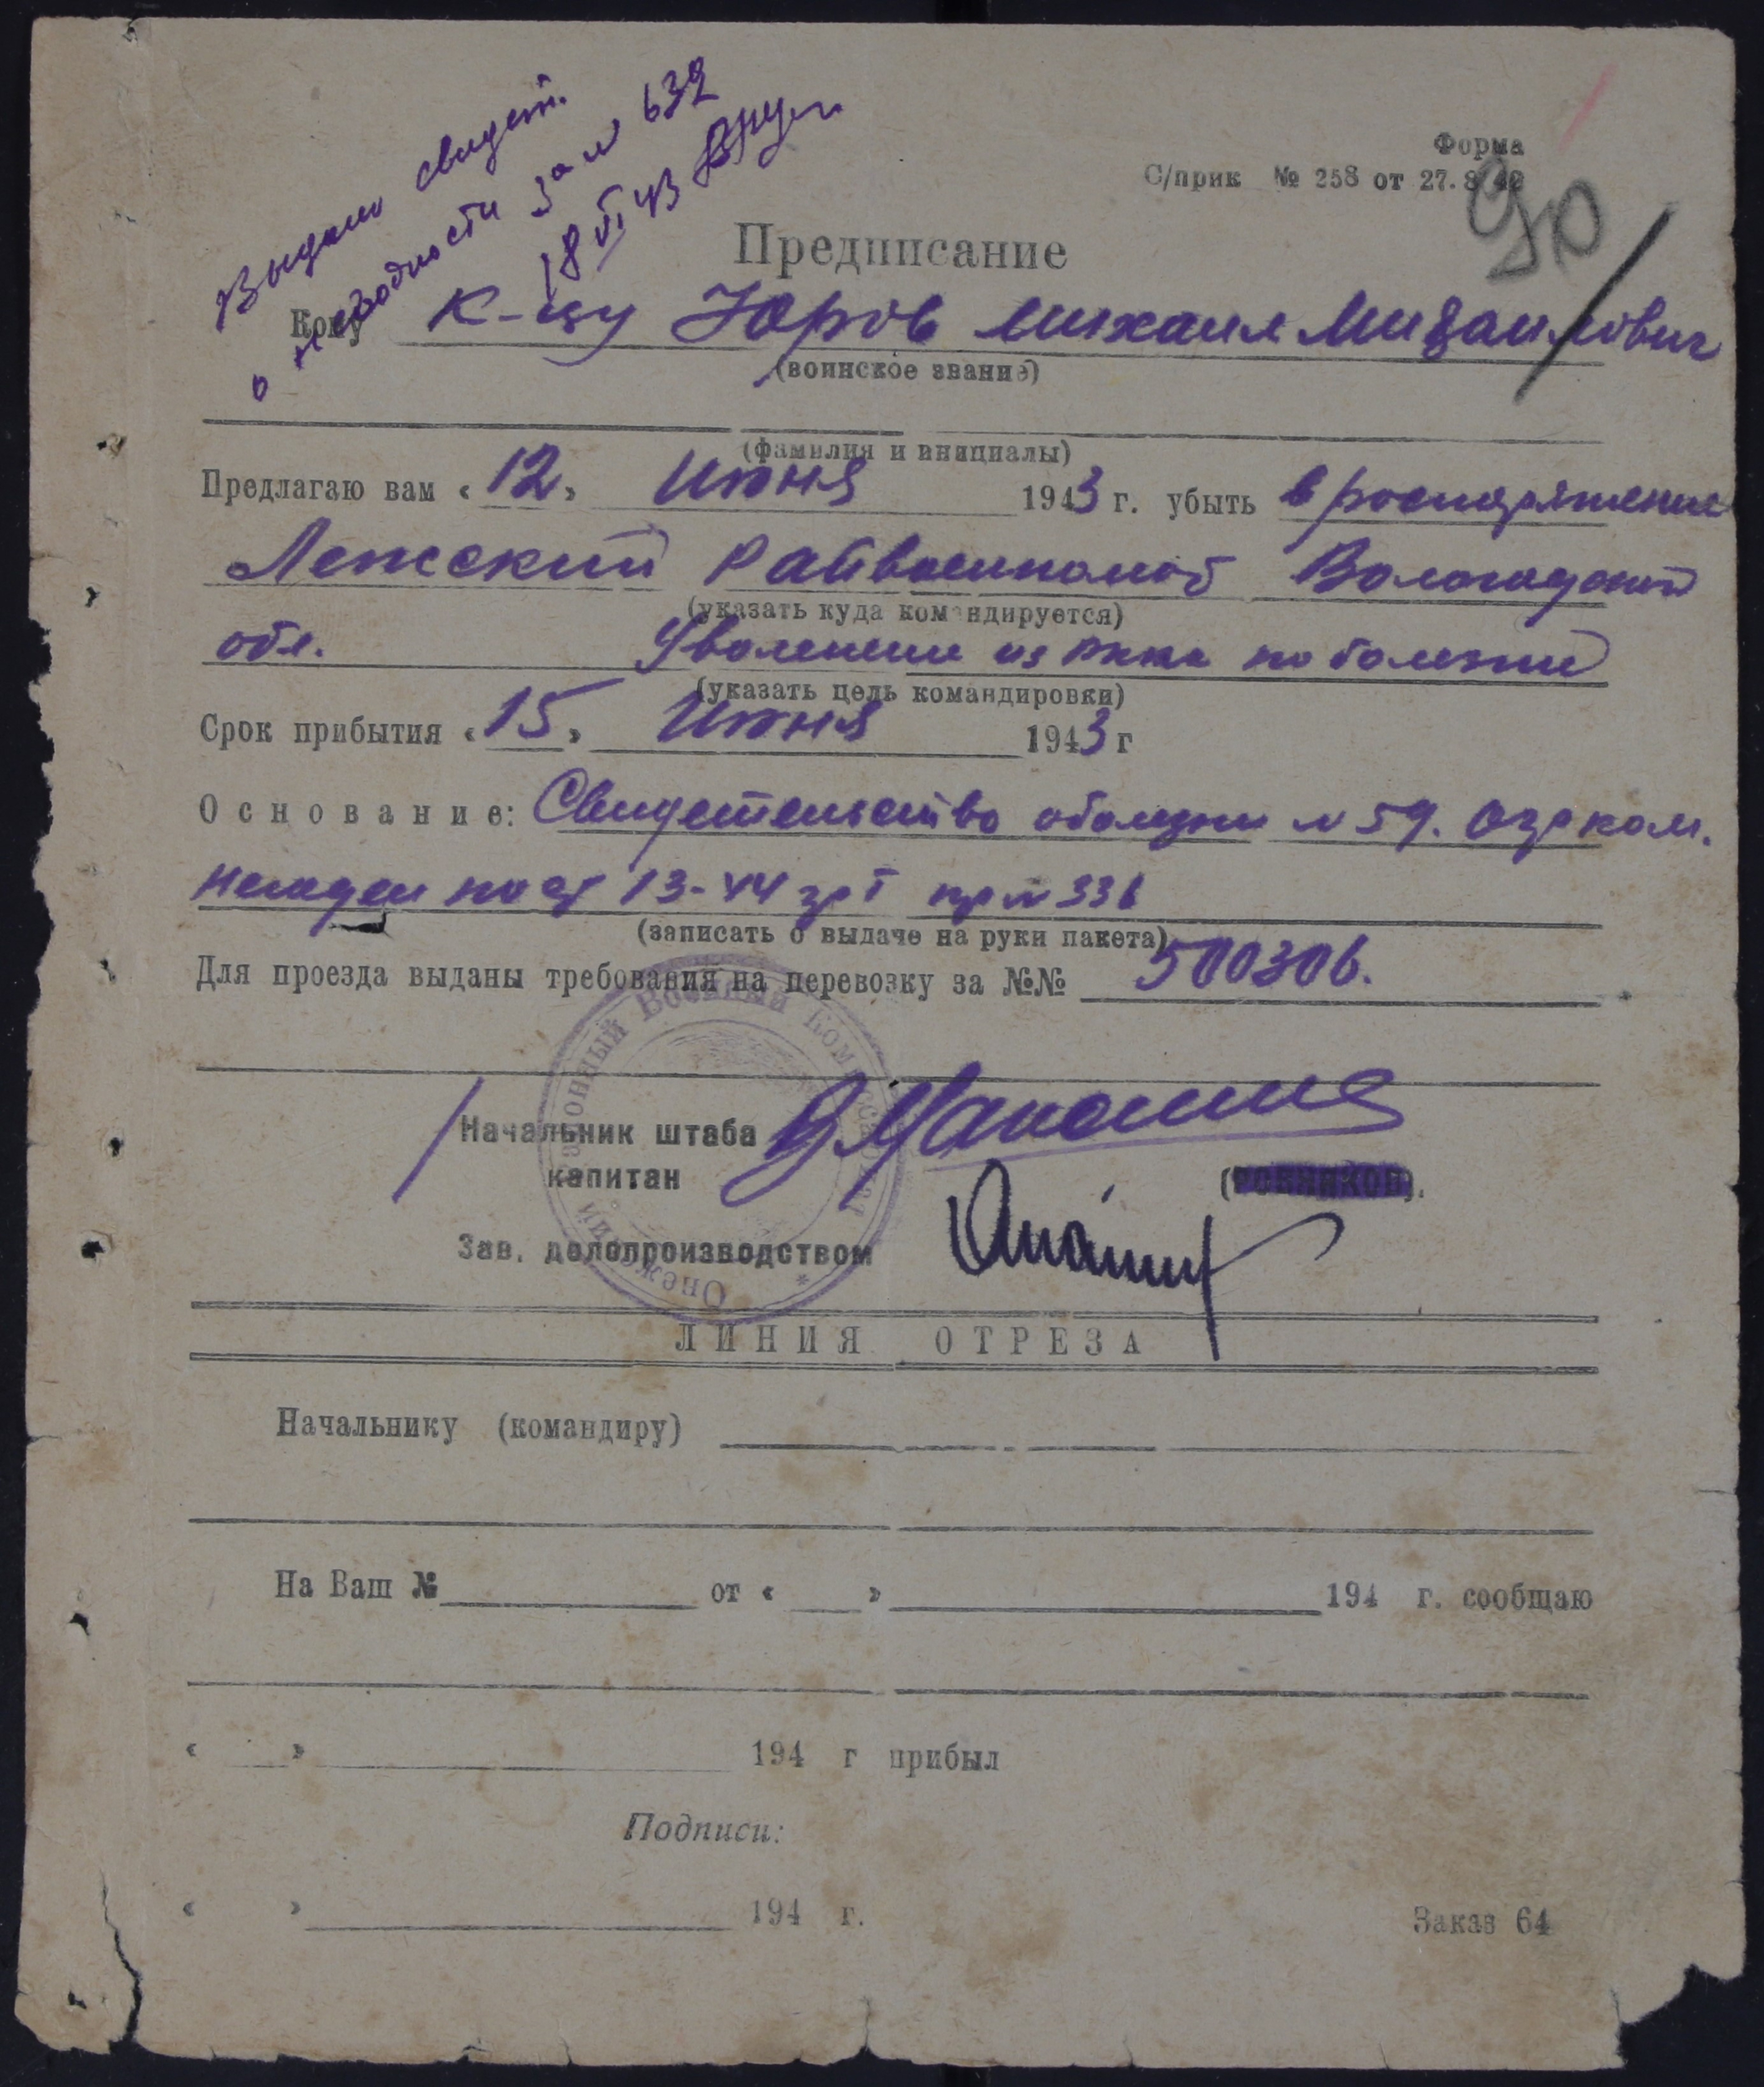 Выдано свидет.
о негодности за № 632
18 VI 43
Форма
С/прик № 258 от 27.8 40
90
Предписание
Кому К-цу Юров Михаил Михайлович
(воинское звание)
(фамилия и инициалы)
Предлагаю вам «12» Июня 1943 г. убыть в роспоряжение
Лежский Райвоенкомат Вологодской
(указать куда командируется)
обл. Уволенние из РККА по болезни
(указать цель командировки)
Срок прибытия «15» Июня 1943 г
Основание: Свидетельство оболезни № 59.
негоден по ст 13-44 гр I пр № 336
(записать о выдаче на руки пакета)
Для проезда выданы требования на перевозку за №№ 500306.
Онежский Районный Военный Комиссариат
Начальник штаба
капитан
Зав. делопроизводством
ЛИНИЯ ОТРЕЗА
Начальнику (командиру)
На Ваш № от « » 194 г. сообщаю
« » 194 г прибыл
Подписи:
« » 194 г.
Заказ 64